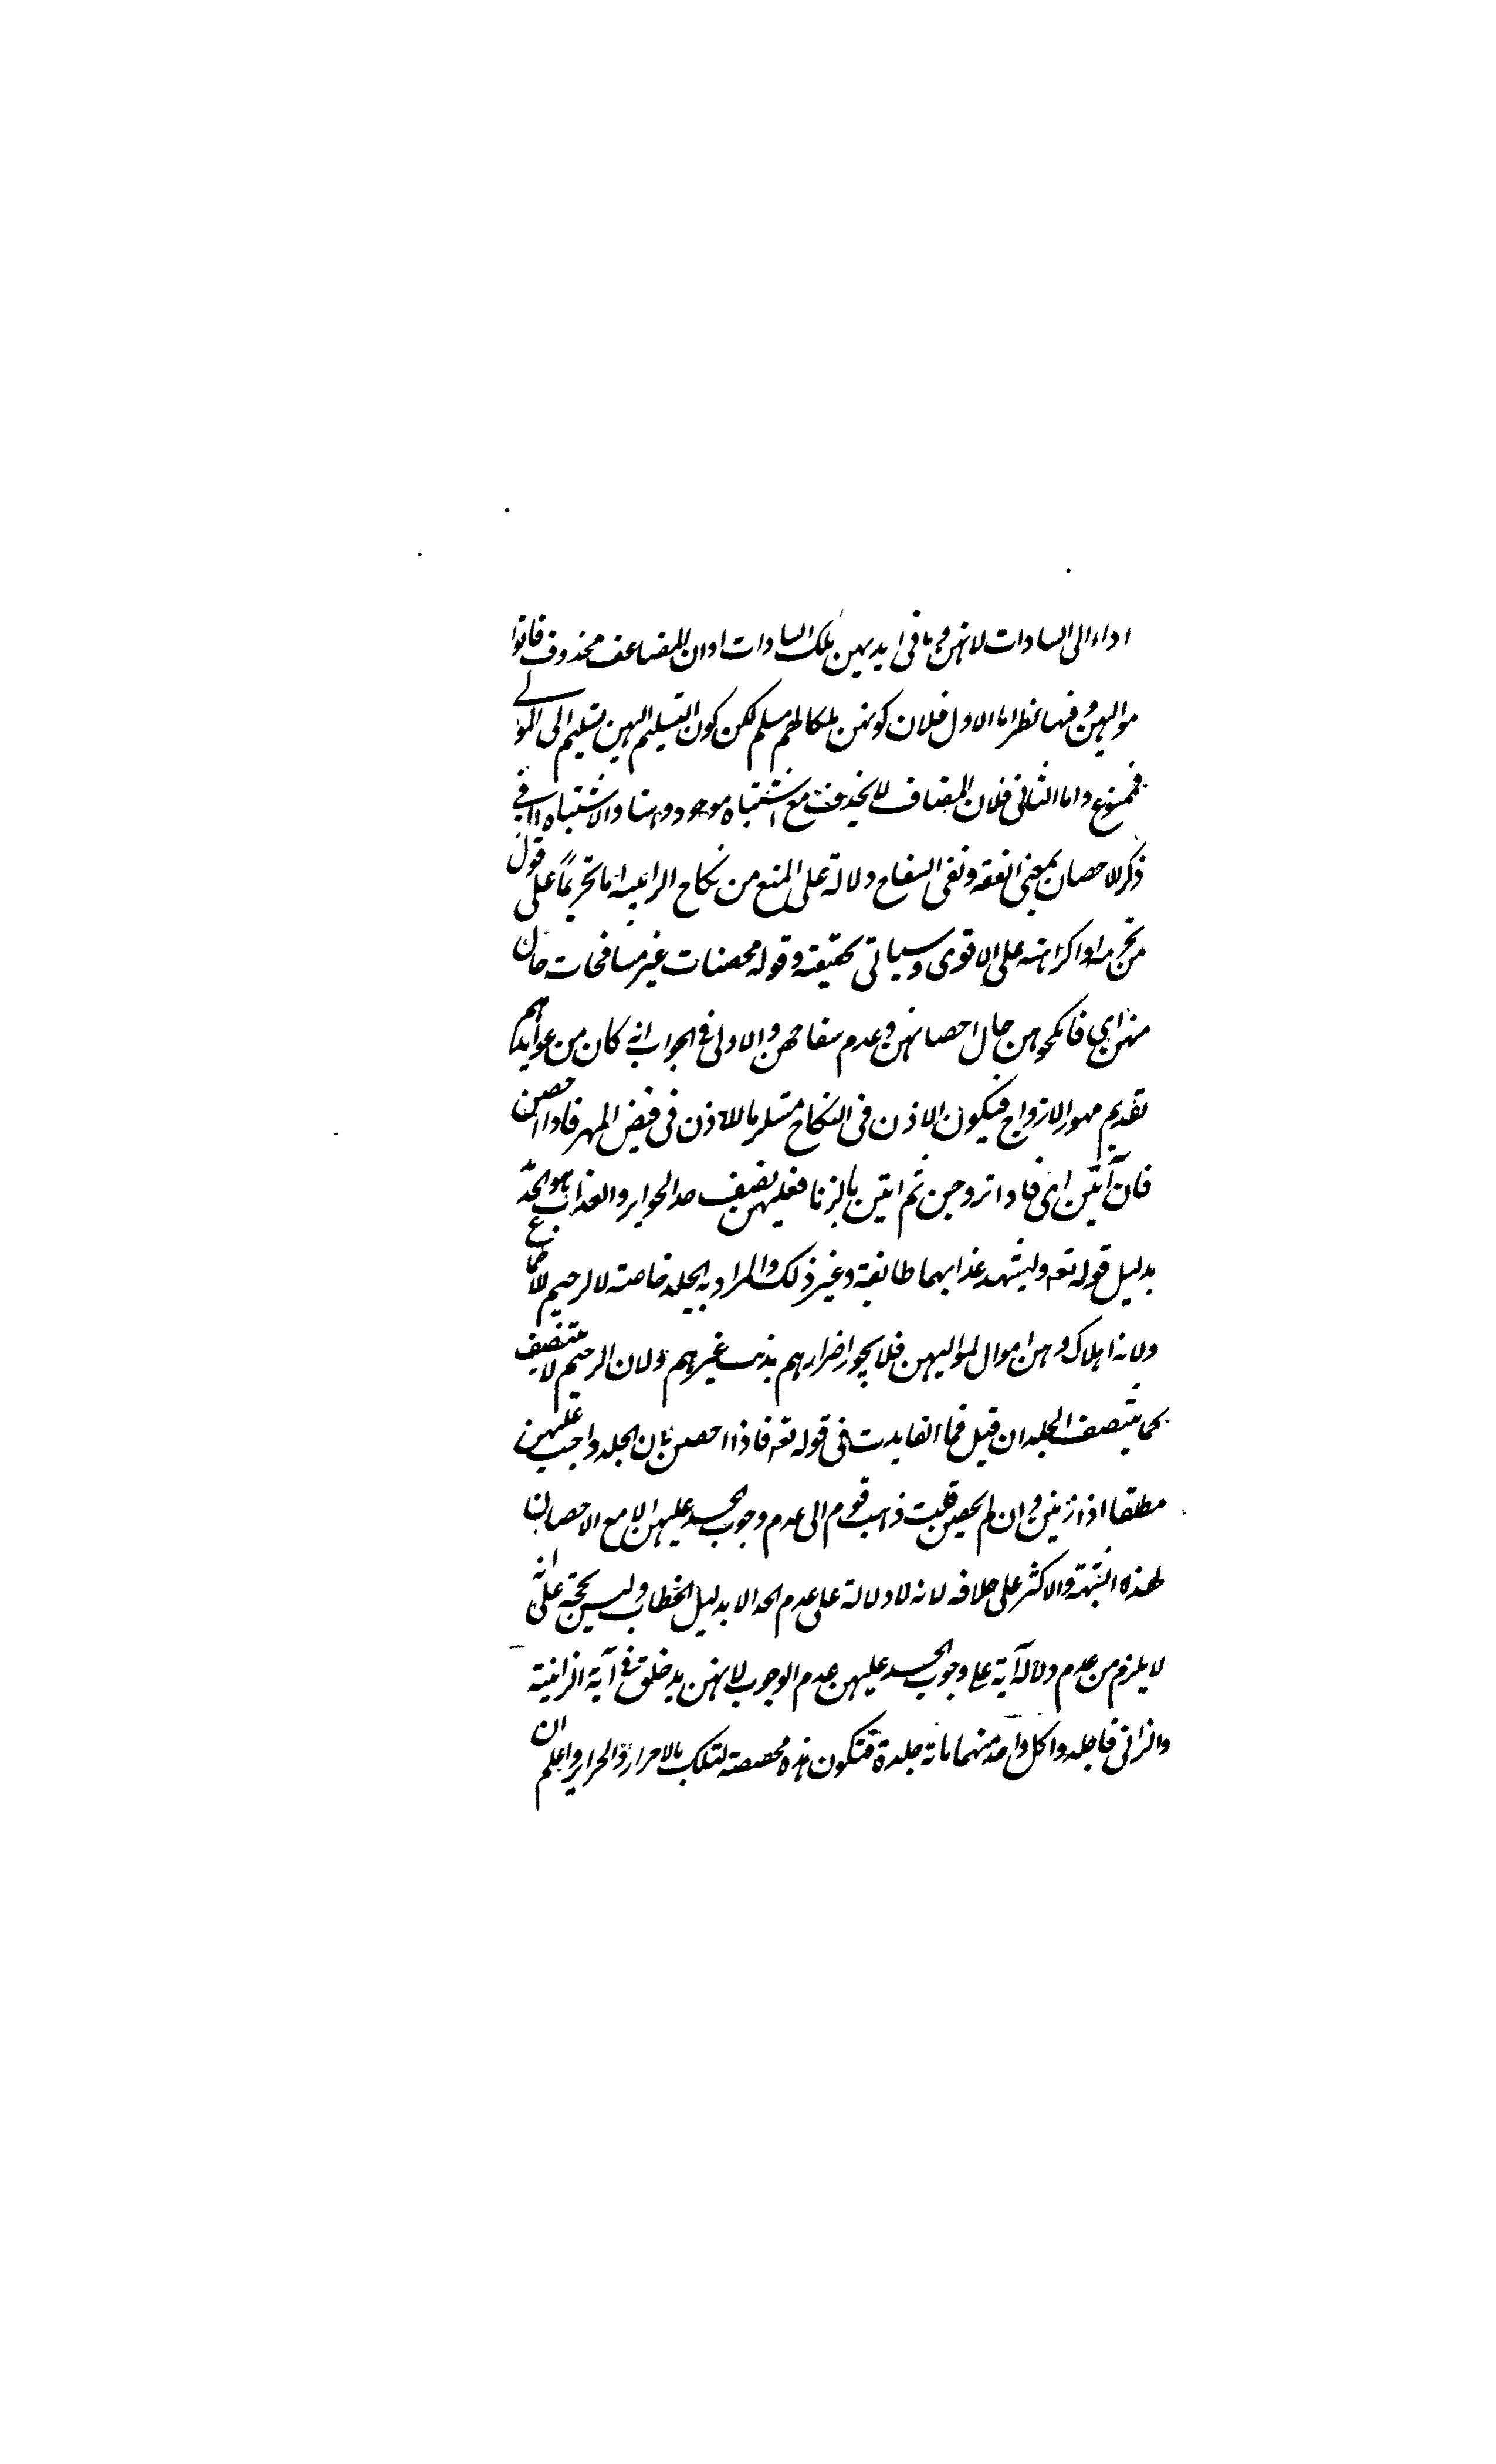 اداء الى السادات لانهن وما فى ايديهن ملك السادات او ان المضاعف محذوف فاتوا
مواليهن وفيها نظر اما الاول فلان كونهن ملكا لهم مسلم لكن كون التسليم اليهن تسليم الى الموالي
فممنوع واما الثانى فلان المضاف لا يحذف مع اشتباه موجود وهنا والاشتباه ا فى
ذكر الاحصان بمعنى العفه ونفى السفاح دلالة على المنع من نكاح الزانية اما تحريماً على قول
من يحرمه او اكراهه على الاقوى وسياتى تحقيقه وقوله محصنات غير مسافحات حال
منهن اى فانكحوهن حال احصانهن وعدم سفاحهن والاولى فى الجواب انه كان من عوايدهم
تقديم مهور الازواج فيكون الاذن فى النكاح مستلزما للاذن فى قبض المهر فاذا احصن
فان آتين اى فاذا تزوجن ثم اتين بالزنا فعليهن نصف حد الحراير والعذاب هو الحد
بدليل قوله تعه وليشهد عذابهما طائفة وغير ذلك والمراد به الجلد خاصة لا الرجم للاجماع
ولانه اهلاك وهن اموال لمواليهن فلا يجوز اضرارهم بذنب غيرهم ولان الرجم لا يتنصف
كما يتنصف الجلد ان قيل فما الفايدت فى قوله تعه فاذا احصن بان الجلد واجب عليهن
مطلقا اذا زنين وان لم يحصن قلت ذهب قوم الى عدم وجوب الحد عليهن الا مع الاحصان
لهذه الشبهة والاكثر على خلافه لانه لا دلالة على عدم الحد الا بدليل الخطاب وليس بحجة على انه
لا يلزم من عدم دلالة آية على وجوب الحد عليهن عدم الوجوب لانهن يدخلن فى آية الزانية
والزانى فاجلدوا كل واحد منهما مائة جلدة فتكون هذه مخصصة لتلك بالاحرار والحراير واعلم ان